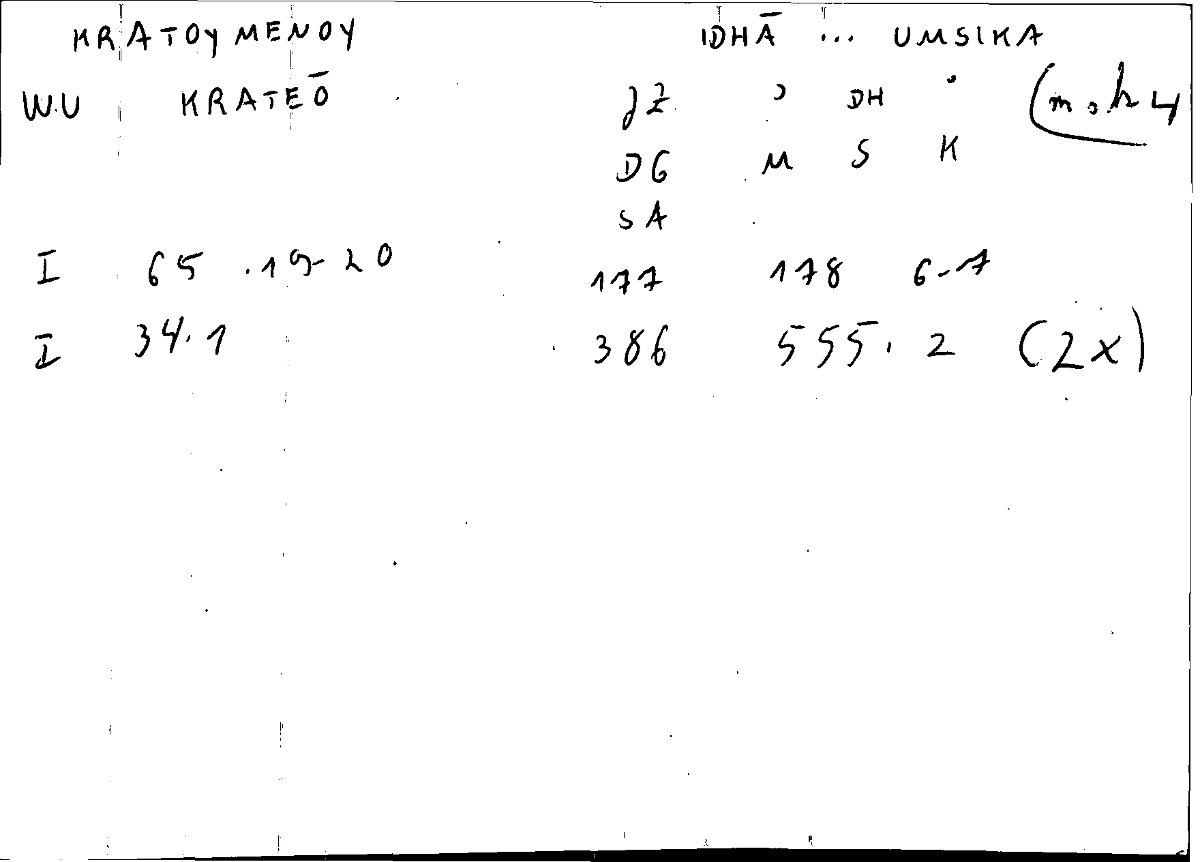 KRATOYMENOY IDHĀ ... UMSIKA
W.U KRATEŌ JZ ʾ DH ʾ
DG M S K
SA
I 65.19-20 177 178 6-7
I 34.1 386 555.2 (2x)